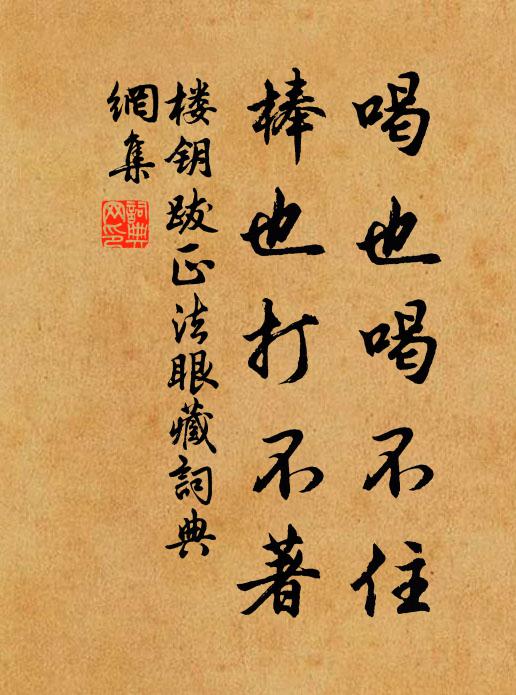 喝也喝不住
棒也打不著
楼钥跋正法眼藏詞典
網集
詞典網印